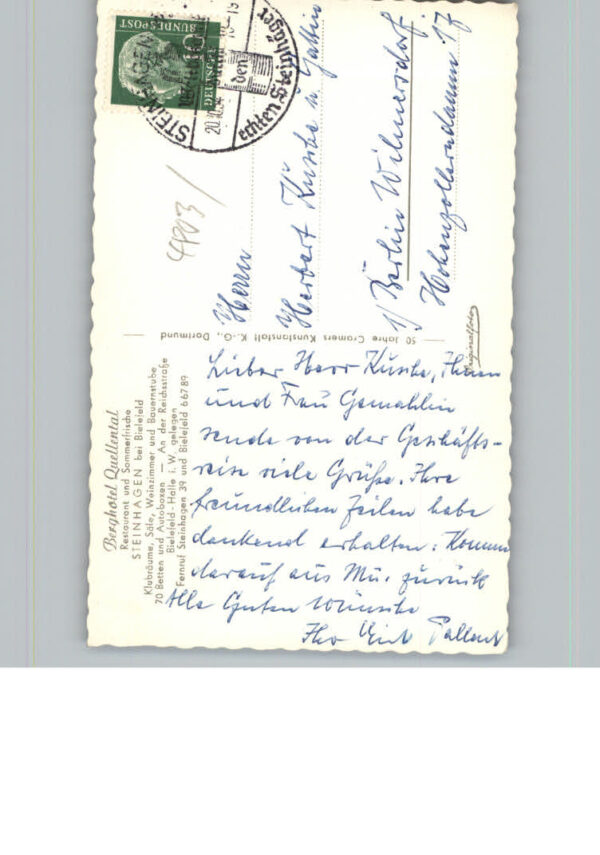 Berghotel Quellental
Restaurant und Sommerfrische
STEINHAGEN bei Bielefeld
Klubräume, Säle, Weinzimmer und Bauernstube
70 Betten und Autoboxen — An der Reichsstraße
Bielefeld-Halle i. W. gelegen
Fernruf Steinhagen 39 und Bielefeld 66789
50 Jahre Cramers Kunstanstalt K.-G., Dortmund
Originalfoto
DEUTSCHE
BUNDESPOST
10
STEINHAGEN
20.10.54
den
echten Steinhäger
4803/
Herrn
Herbert Kuske u. Gattin
1/ Berlin Wilmersdorf
Hohenzollerndamm 17
Lieber Herr Kuske, Ihnen
und Frau Gemahlin
sende von der Geschäfts-
reise viele Grüße. Ihre
freundlichen Zeilen habe
dankend erhalten. Komme
darauf aus Mü. zurück
Alle Guten Wünsche
Ihr